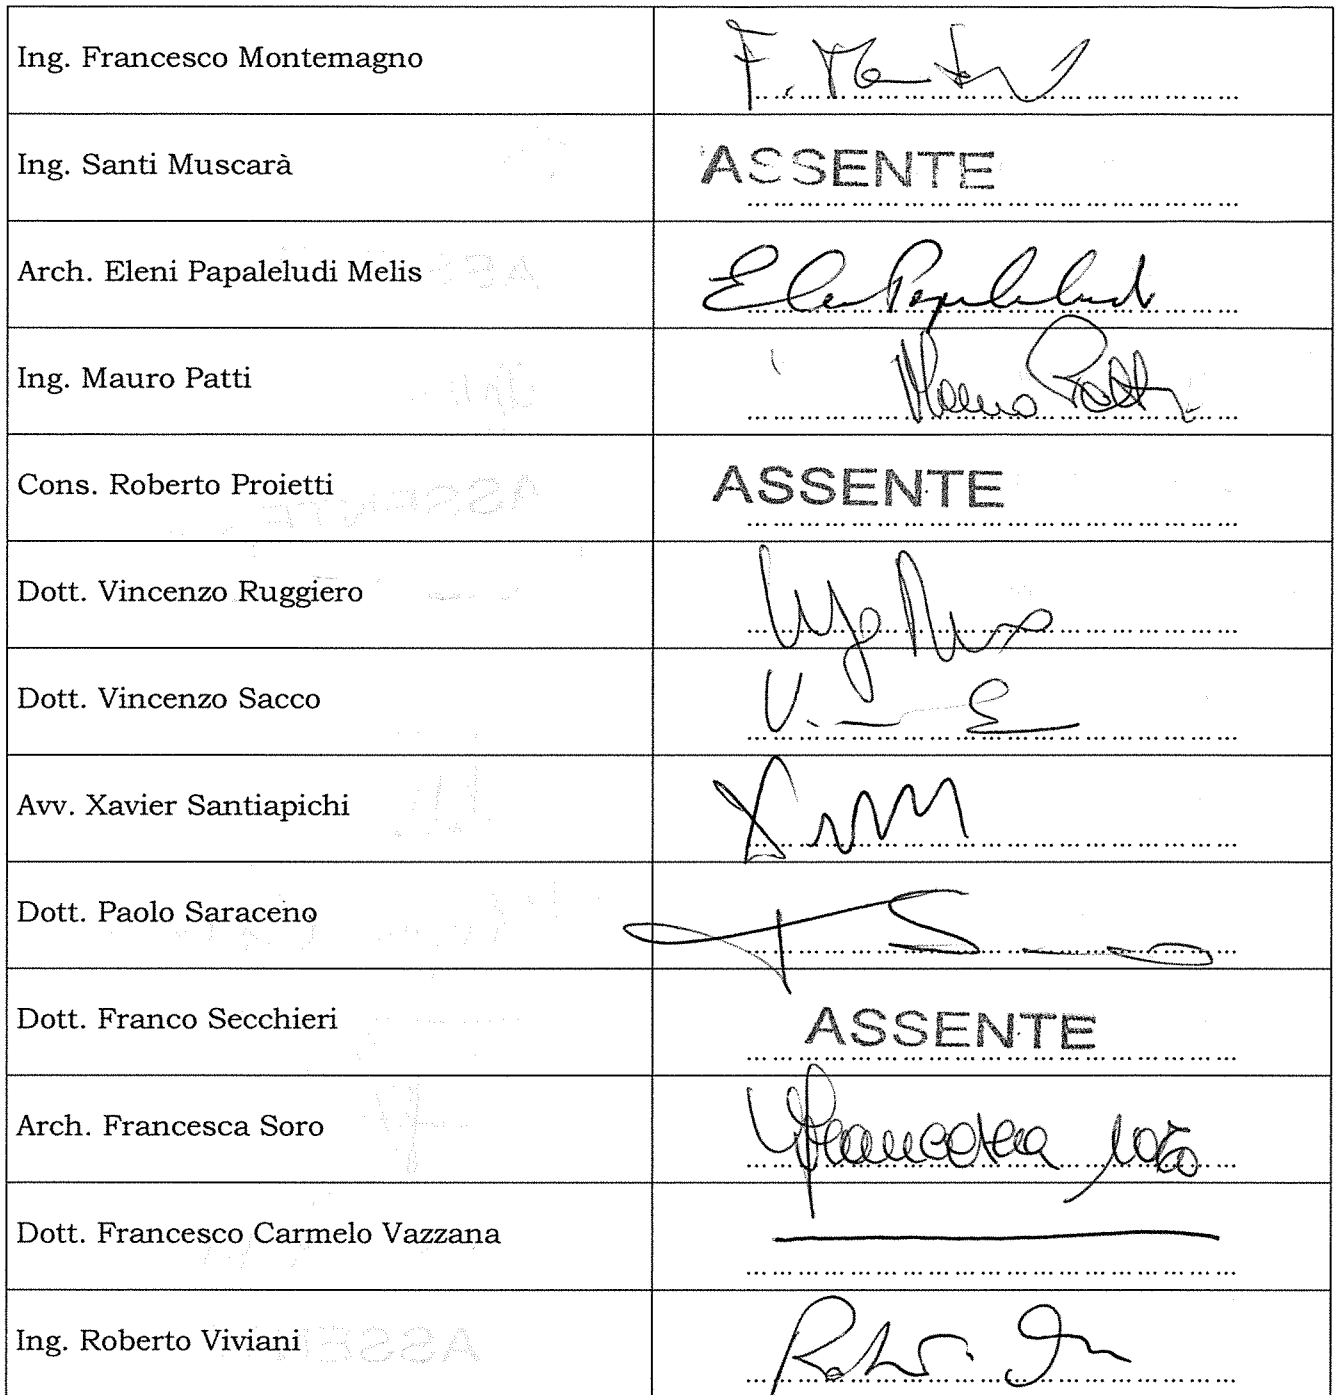 Ing. Francesco Montemagno
F. 
Ing. Santi Muscarà
ASSENTE
Arch. Eleni Papaleludi Melis
Ing. Mauro Patti
Mauro Patti
Cons. Roberto Proietti
ASSENTE
Dott. Vincenzo Ruggiero
Dott. Vincenzo Sacco
Avv. Xavier Santiapichi
Dott. Paolo Saraceno
Dott. Franco Secchieri
ASSENTE
Arch. Francesca Soro
Francesca Soro
Dott. Francesco Carmelo Vazzana
Ing. Roberto Viviani